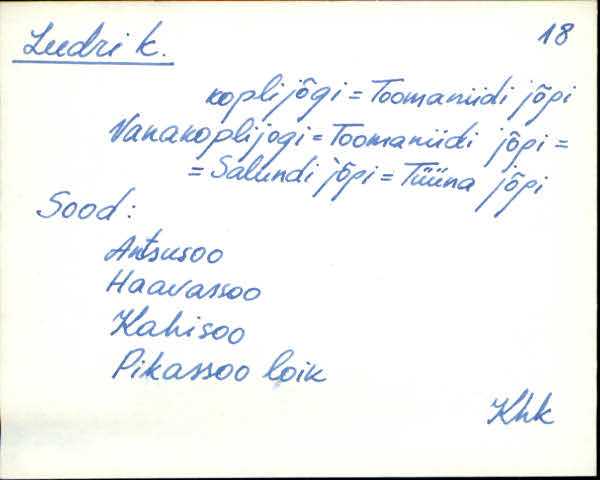 Leedri k. 18
koplijõgi = Toomaniidi jõgi
Vanakoplijõgi = Toomaniidi jõgi =
= Salundi jõgi = Tüüna jõgi
Sood:
Antsusoo
Haavassoo
Kahisoo
Pikassoo loik
Khk